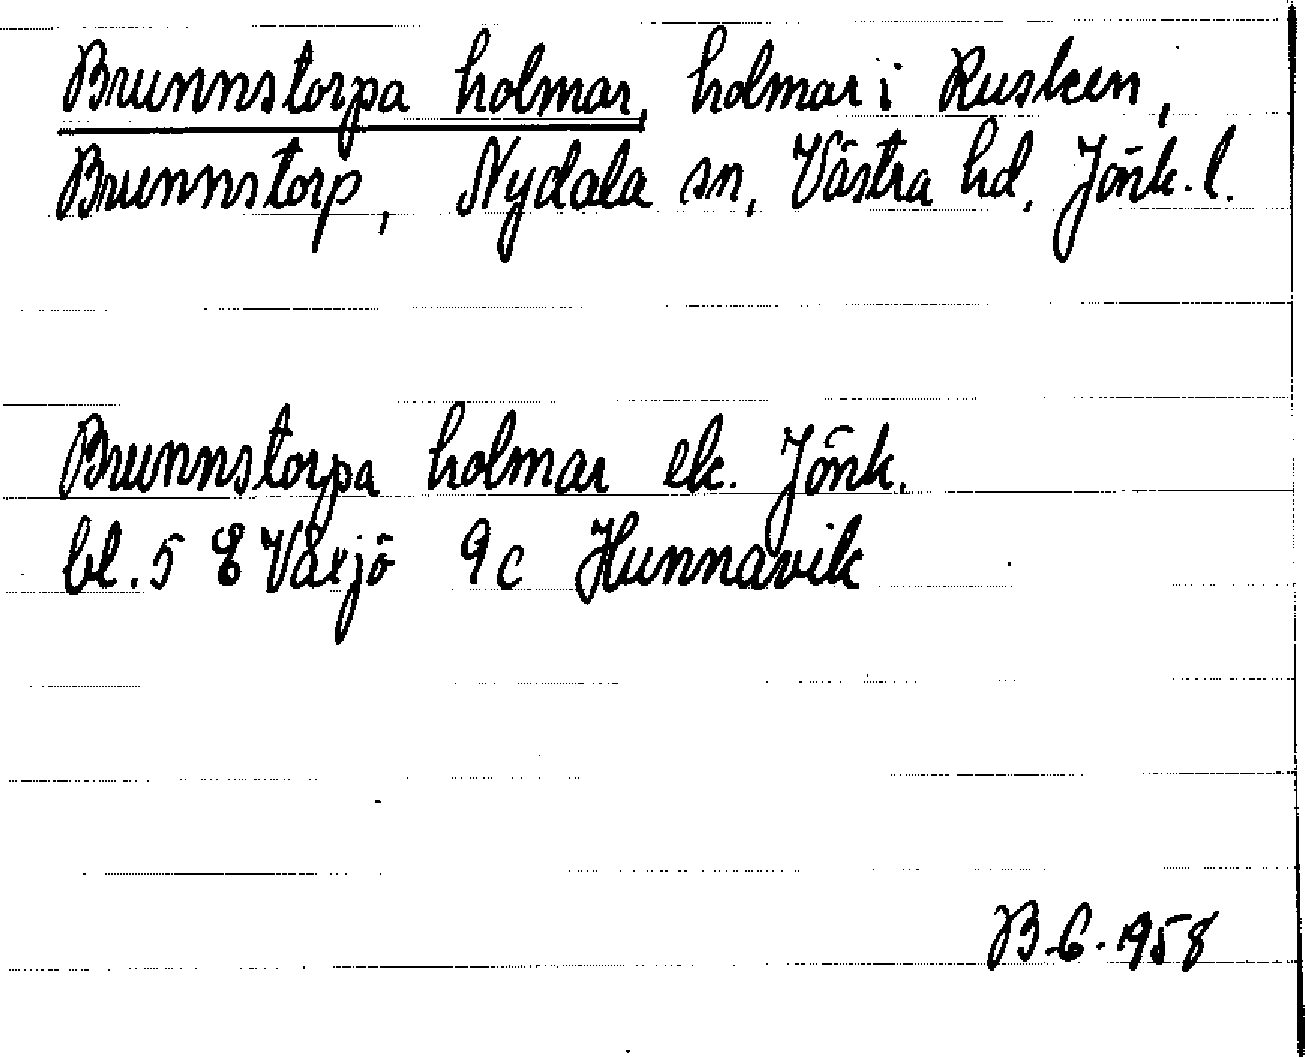 Brunnstorpa holmar, holmar i Rusken,
Brunnstorp, Nydala sn, Västra hd, Jönk. l.
Brunnstorpa holmar ek. Jönk.
bl. 5 E Växjö 9c Hunnavik
B.G. 1958